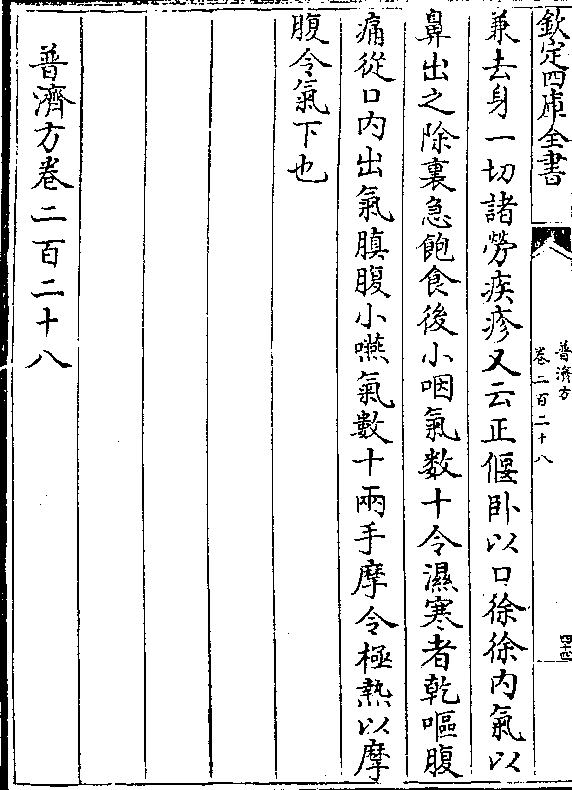 欽定四庫全書
普濟方
卷二百二十八
兼去身一切諸勞疾疹又云正偃卧以口徐徐内氣以
鼻出之除裏急飽食後小咽氣数十令濕寒者乾嘔腹
痛從口内出氣䐜腹小嚥氣數十兩手摩令極熱以摩
腹令氣下也
普濟方卷二百二十八